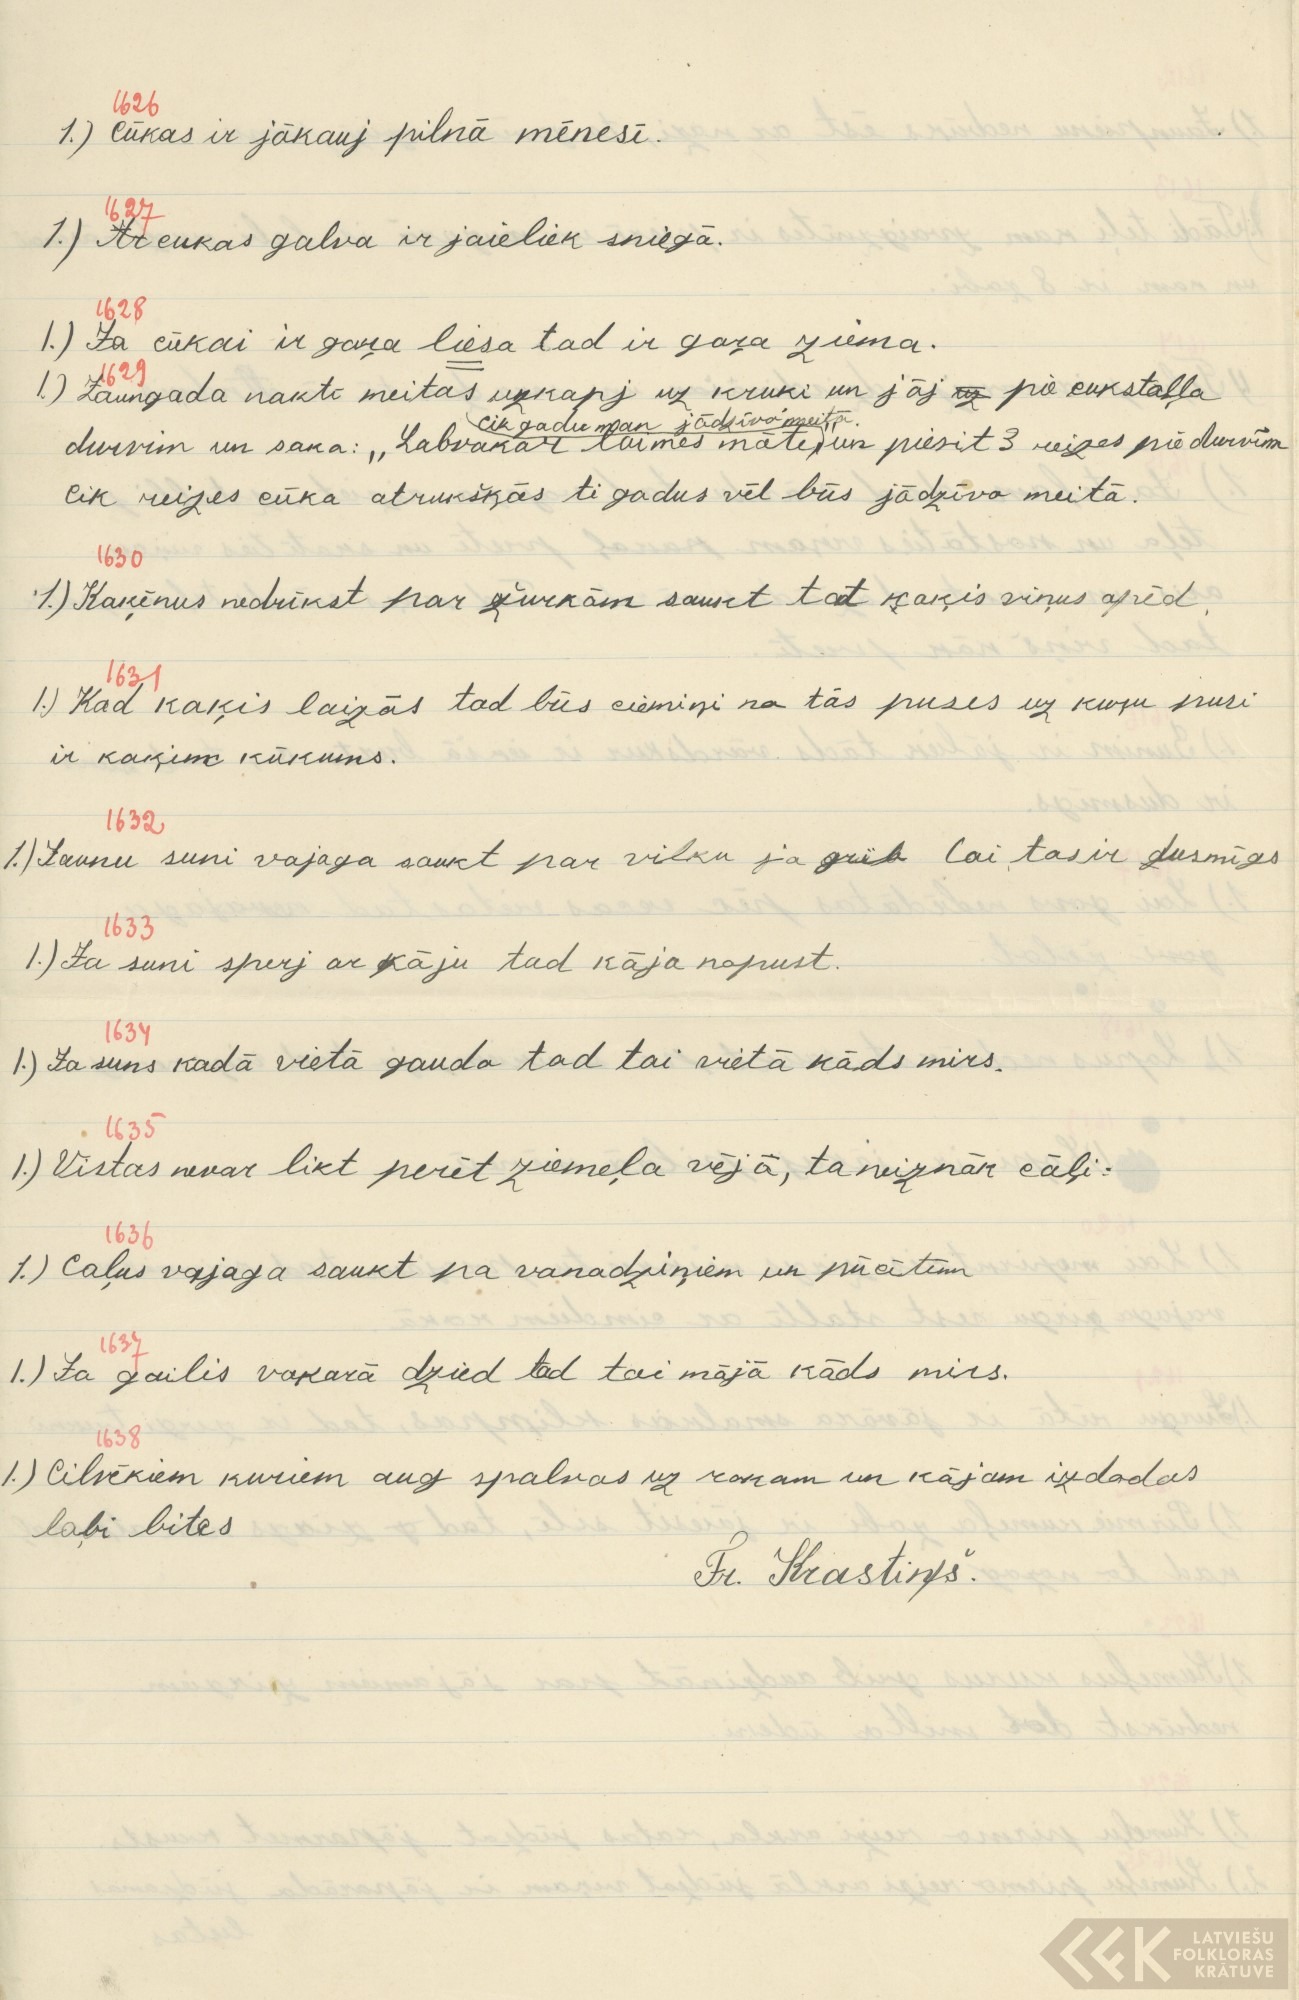 1626
1.) Cūkas ir jākauj pilnā mēnesī.
1627
1.) Ar cukas galva ir jaieliek sniegā.
1628
1.) Ja cūkai ir gaŗa liesa tad ir gaŗa ziema.
1629
1.) Jaungada naktī meitas uzkapj uz kruķi un jāj uz pie cukstaļļa
cik gadu man jādzīvo meitā.
durvim un saka: „Labvakar laimes māte" un piesit 3 reizes pie durvīm
Cik reizes cūka atrukšķās ti gadus vēl būs jādzīvo meitā.
1630
1.) Kaķēnus nedrīkst par žurkām saukt tad kaķis viņus apēd.
1631
1.) Kad kaķis laizās tad būs ciemiņi no tās puses uz kuŗu pusi
ir kaķim kūkums.
1632
1.) Jaunu suni vajaga saukt par vilku ja grib lai tas ir dusmīgs
1633
1.) Ja suni sperj ar kāju tad kāja nopūst.
1634
1.) Ja suns kadā vietā gaudo tad tai vietā kāds mirs.
1635
1.) Vistas nevar likt perēt ziemeļa vējā, ta neiznāk cāļi.
1636
1.) Caļus vajaga saukt pa vanadziņiem un pūcītēm
1637
1.) Ja gailis vakarā dzied tad tai mājā kāds mirs.
1638
1.) Cilvēkiem kuriem aug spalvas uz rokam un kājam izdodas
labi bites
Fr. Krastiņš.
LATVIEŠU
FOLKLORAS
KRĀTUVE